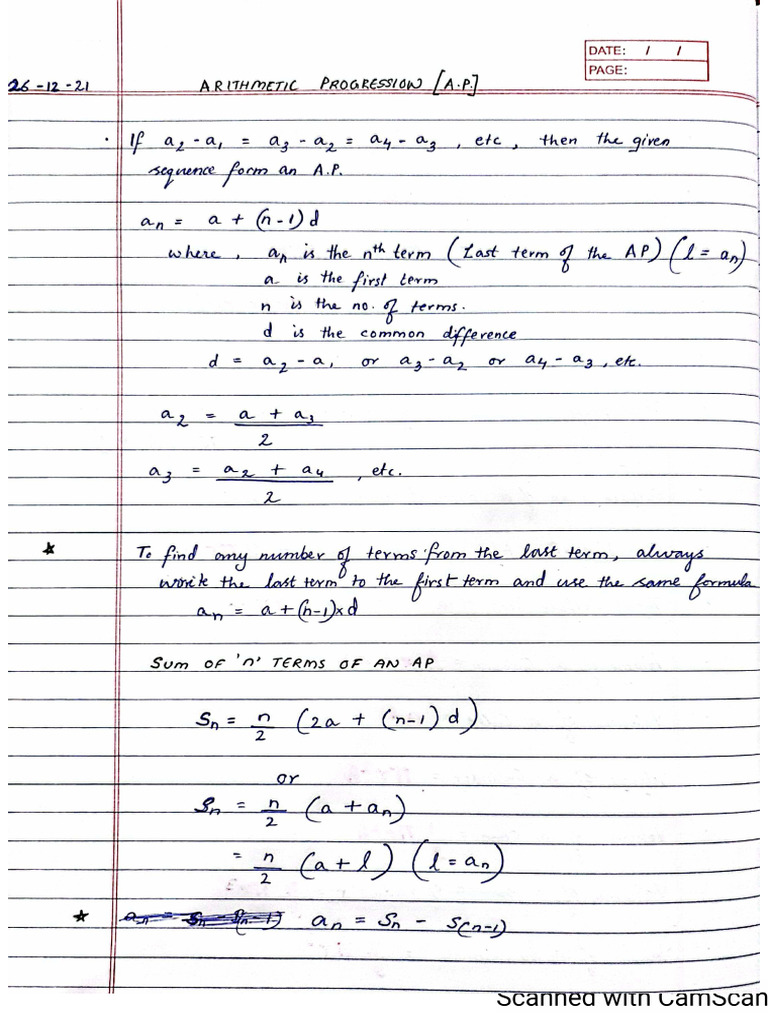 DATE: / /
PAGE:
26-12-21 ARITHMETIC PROGRESSION [A.P.]
· If a₂ - a₁ = a₃ - a₂ = a₄ - a₃ , etc , then the given
sequence form an A.P.
aₙ = a + (n-1) d
where , aₙ is the nᵗʰ term (Last term of the AP) (l = aₙ)
a is the first term
n is the no. of terms.
d is the common difference
d = a₂ - a₁ or a₃ - a₂ or a₄ - a₃ , etc.
a₂ = a + a₃
2
a₃ = a₂ + a₄ , etc.
2
★ To find any number of terms from the last term, always
write the last term to the first term and use the same formula
aₙ = a + (n-1)×d
SUM OF 'n' TERMS OF AN AP
Sₙ = n/2 (2a + (n-1) d)
or
Sₙ = n/2 (a + aₙ)
= n/2 (a + l) (l = aₙ)
★ aₙ = Sₙ - S₍ₙ₋₁₎ aₙ = Sₙ - S₍ₙ₋₁₎
Scanned with CamScan